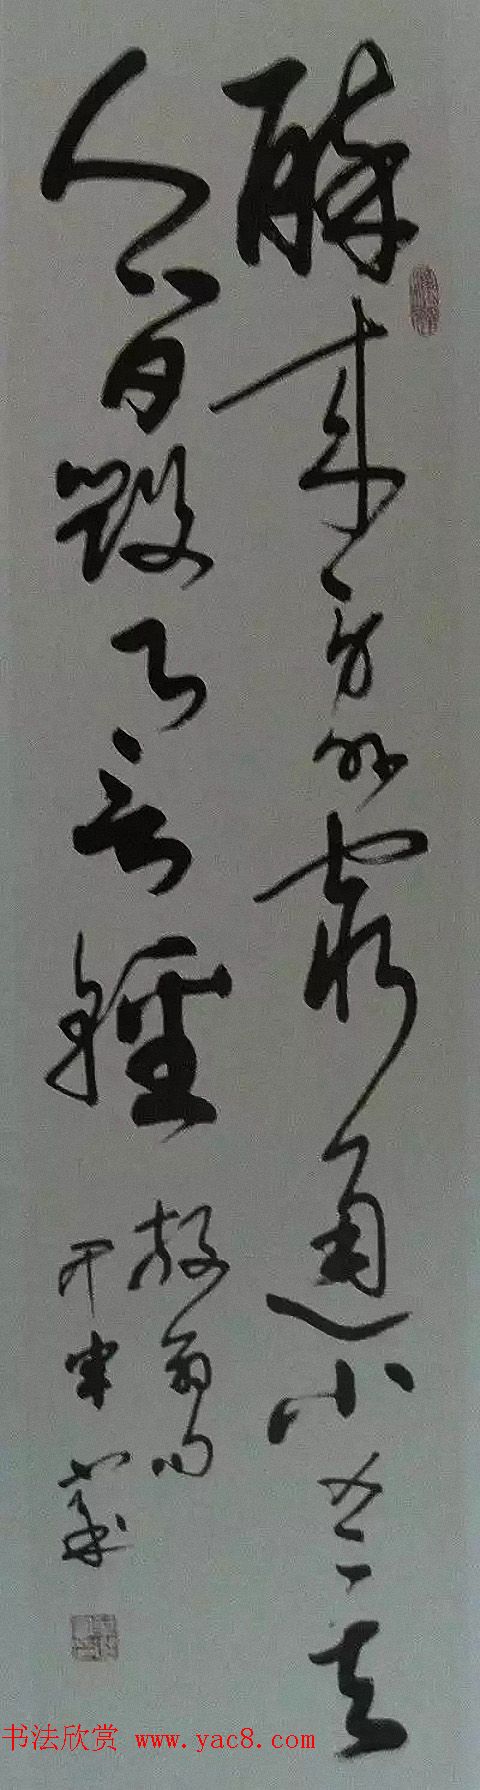 醉来身外窮通小老去
人间毁誉輕
放翁句
书法欣赏 www.yac8.com